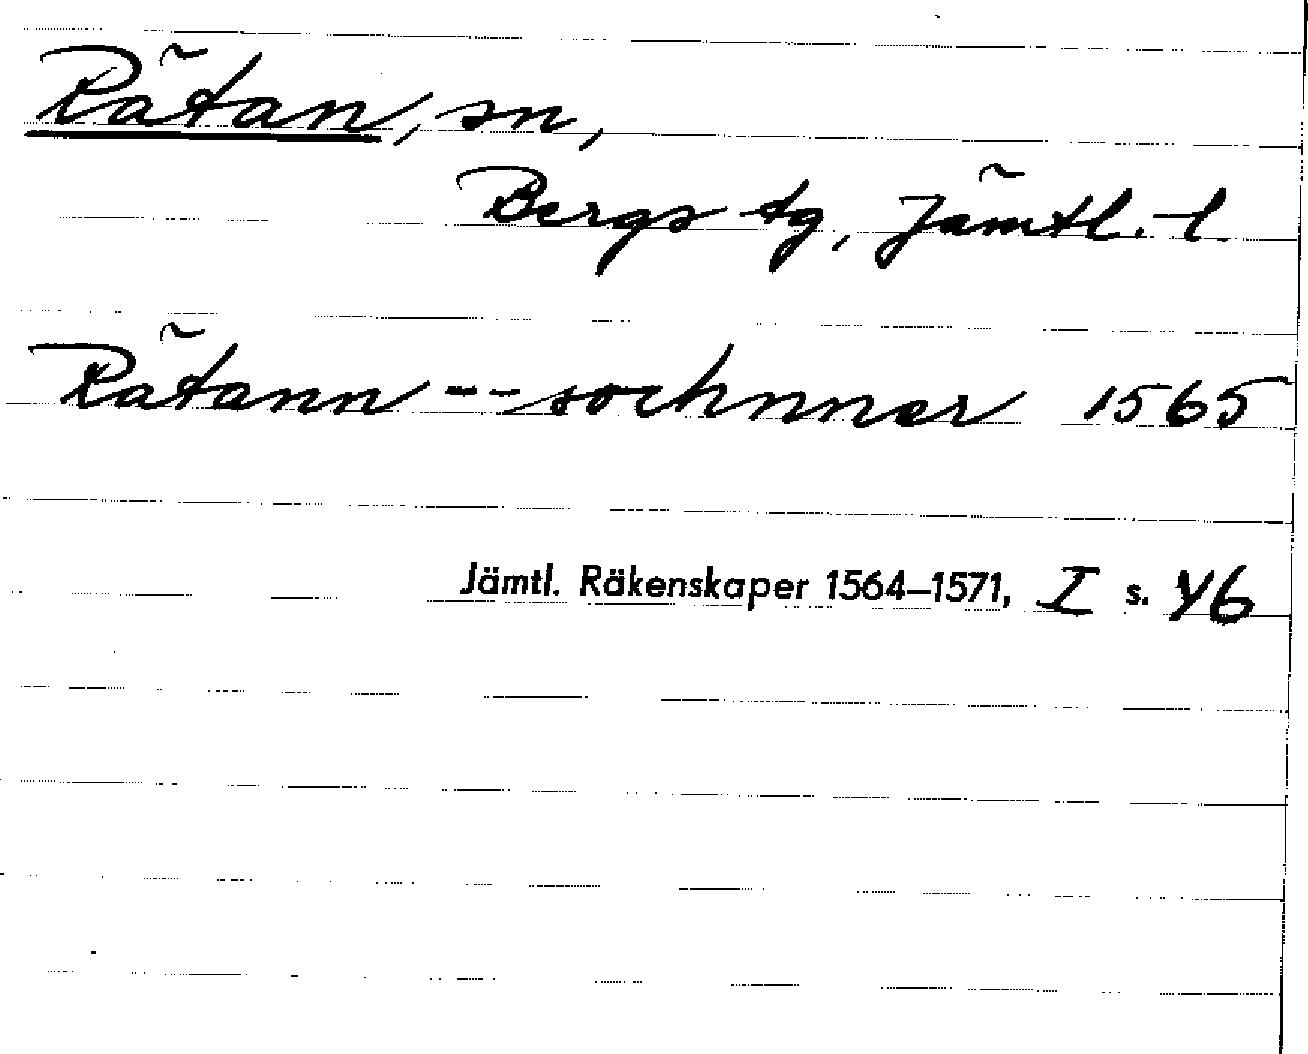 Rätan, sn,
Bergs tg, Jämtl. l.
Rätann -- sochnner 1565
Jämtl. Räkenskaper 1564–1571, I s. 46